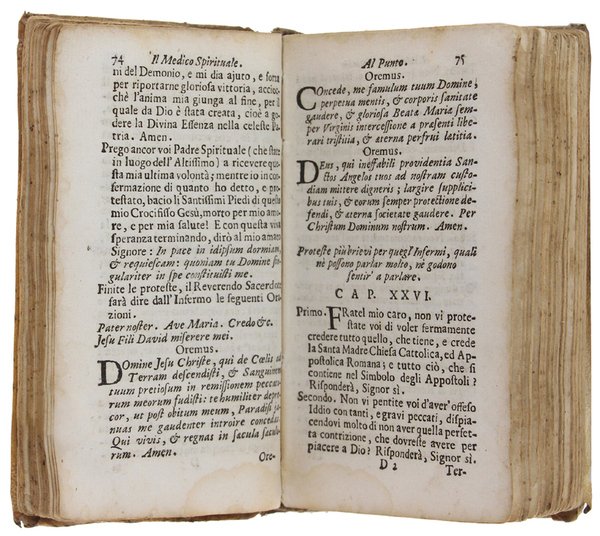 74 Il Medico Spirituale.
ni del Demonio, e mi dia ajuto, e forza
per riportarne gloriosa vittoria, accioc-
chè l'anima mia giunga al fine, per il
quale da Dio è stata creata, cioè a go-
dere la Divina Essenza nella celeste Pa-
tria. Amen.
Prego ancor voi Padre Spirituale (che state
in luogo dell'Altissimo) a ricevere que-
sta mia ultima volontà; mentre io in con-
fermazione di quanto ho detto, e pro-
testato, bacio li Santissimi Piedi di questo
mio Crocifisso Gesù, morto per mio amo-
re, e per mia salute! E con questa viva
speranza terminando, dirò al mio amato
Signore: In pace in idipsum dormiam,
& requiescam: quoniam tu Domine sin-
gulariter in spe constituisti me.
Finite le proteste, il Reverendo Sacerdote
farà dire dall'Infermo le seguenti Ora-
zioni.
Pater noster. Ave Maria. Credo &c.
Jesu Fili David miserere mei.
Oremus.
Domine Jesu Christe, qui de Cœlis ad
Terram descendisti, & Sanguinem
tuum pretiosum in remissionem pecca-
rum meorum fudisti: te humiliter depre-
cor, ut post obitum meum, Paradisi ja-
nuas me gaudenter introire concedas.
Qui vivis, & regnas in sæcula sæculo-
rum. Amen.
Ore-
Al Punto. 75
Oremus.
Concede, me famulum tuum Domine,
perpetua mentis, & corporis sanitate
gaudere, & gloriosa Beatæ Mariæ sem-
per Virginis intercessione a præsenti libe-
rari tristitia, & æterna perfrui lætitia.
Oremus.
Deus, qui ineffabili providentia San-
ctos Angelos tuos ad nostram custo-
diam mittere digneris; largire supplici-
bus tuis, & eorum semper protectione de-
fendi, & æterna societate gaudere. Per
Christum Dominum nostrum. Amen.
Proteste più brievi per quegl'Infermi, quali
nè possono parlar molto, nè godono
sentir' a parlare.
CAP. XXVI.
Primo. FRatel mio caro, non vi prote-
state voi di voler fermamente
credere tutto quello, che tiene, e crede
la Santa Madre Chiesa Cattolica, ed Ap-
postolica Romana; e tutto ciò, che si
contiene nel Simbolo degli Appostoli?
Risponderà, Signor sì.
Secondo. Non vi pentite voi d'aver' offeso
Iddio con tanti, e gravi peccati, dispia-
cendovi molto di non aver quella perfet-
ta contrizione, che dovreste avere per
piacere a Dio? Risponderà, Signor sì.
D 2 Ter-